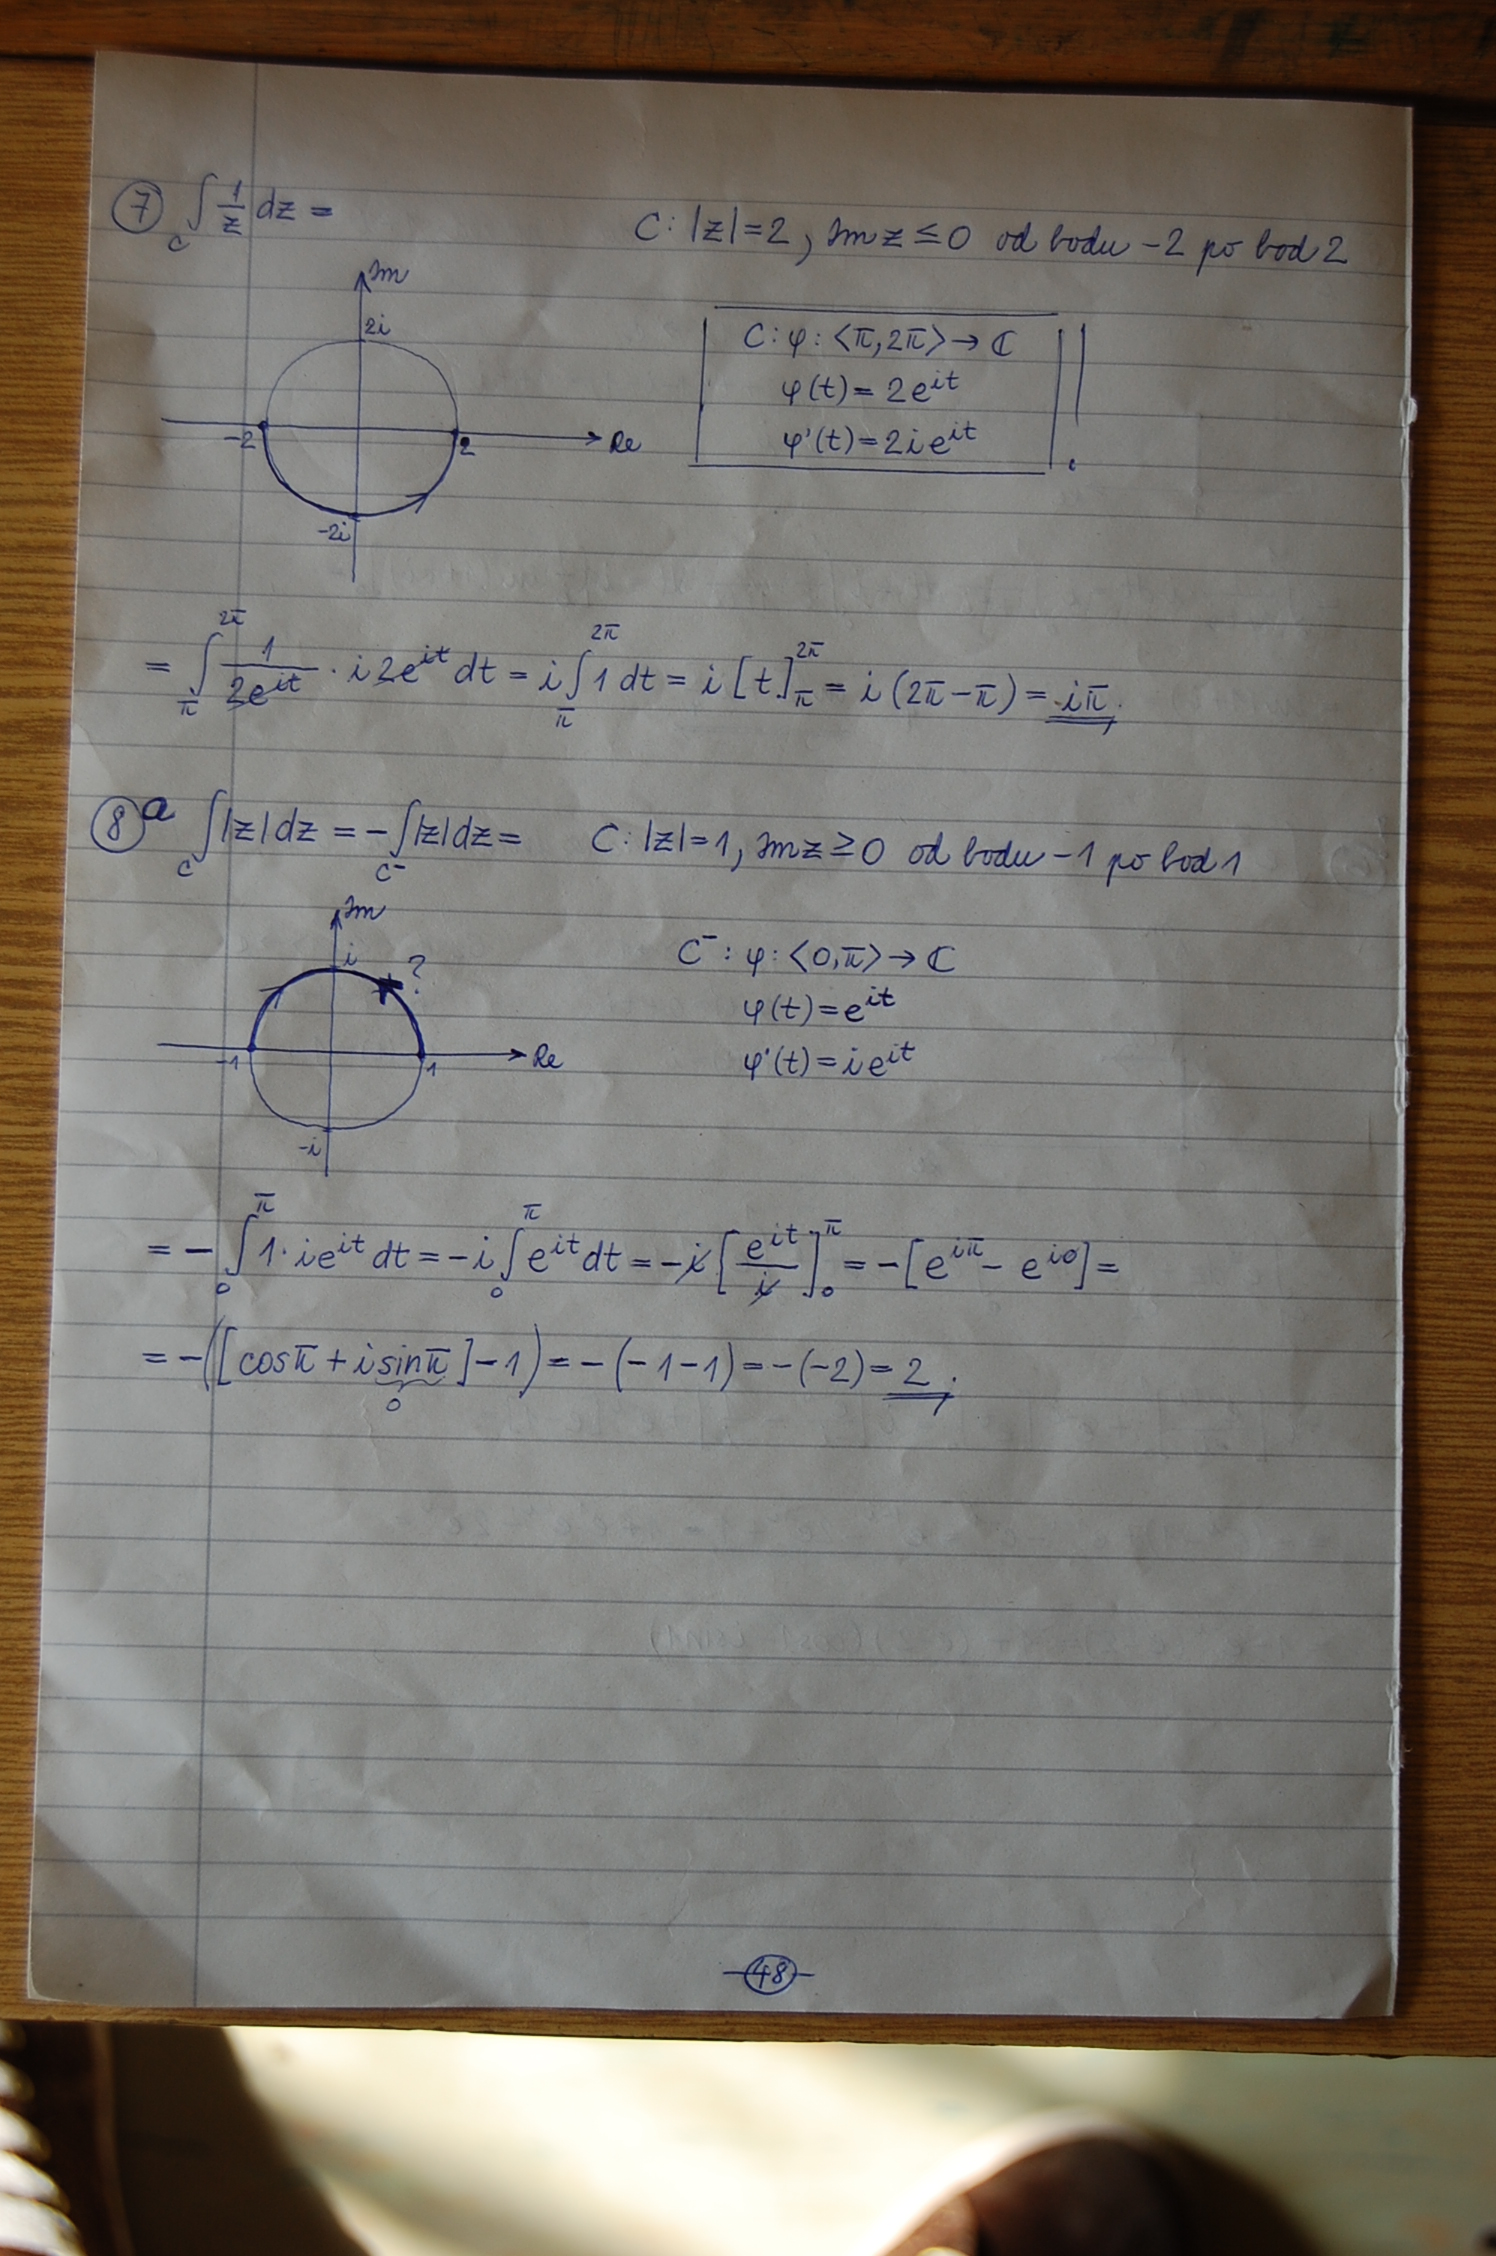 ⑦ ∫_C 1/z dz =    C: |z|=2, Im z ≤ 0 od bodu -2 po bod 2
Im
2i
-2 2 Re
-2i
C: φ: <π, 2π> → ℂ
φ(t) = 2e^{it}
φ'(t) = 2ie^{it}
!
= ∫_π^{2π} 1/(2e^{it}) · i2e^{it} dt = i ∫_π^{2π} 1 dt = i [t]_π^{2π} = i (2π - π) = iπ
⑧ a ∫_C |z| dz = - ∫_{C⁻} |z| dz =    C: |z|=1, Im z ≥ 0 od bodu -1 po bod 1
Im
i ?
-1 1 Re
-i
C⁻: φ: <0, π> → ℂ
φ(t) = e^{it}
φ'(t) = ie^{it}
= - ∫_0^π 1 · ie^{it} dt = -i ∫_0^π e^{it} dt = -i [e^{it}/i]_0^π = -[e^{iπ} - e^{i0}] =
= -([cosπ + i sinπ] - 1) = -(-1-1) = -(-2) = 2
0
-48-